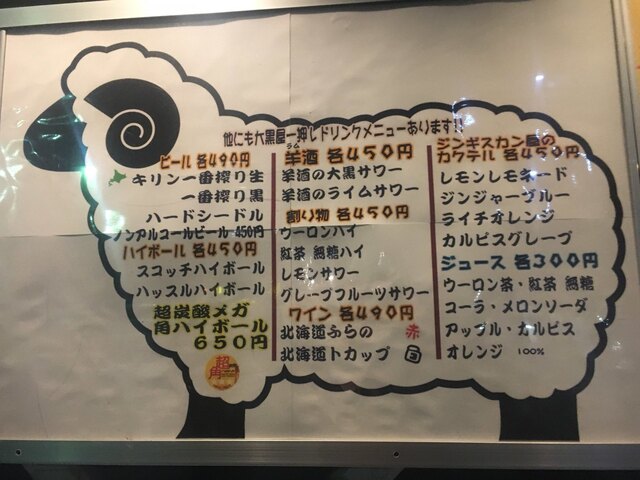 他にも大黒屋一押しドリンクメニューあります!!
ビール 各490円
キリン一番搾り生
一番搾り黒
ハードシードル
ノンアルコールビール 450円
ハイボール 各450円
スコッチハイボール
ハッスルハイボール
超炭酸メガ
角ハイボール
650円
超
角
ラム
羊酒 各450円
羊酒の大黒サワー
羊酒のライムサワー
割り物 各450円
ウーロンハイ
紅茶 無糖ハイ
レモンサワー
グレープフルーツサワー
ワイン 各490円
北海道ふらの 赤
北海道トカップ 白
ジンギスカン屋の
カクテル 各450円
レモンレモネード
ジンジャーブルー
ライチオレンジ
カルピスグレープ
ジュース 各300円
ウーロン茶・紅茶 無糖
コーラ・メロンソーダ
アップル・カルピス
オレンジ 100%